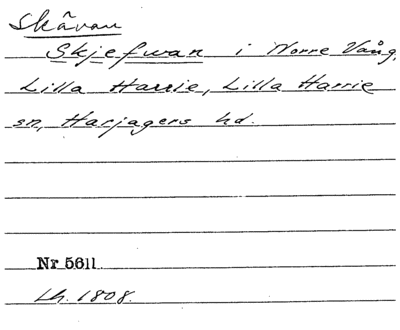 Skãvan
Skjefwan i Norre Vång,
Lilla Harrie, Lilla Harrie
sn, Harjagers hd.
Nr 5611
Lh. 1808.